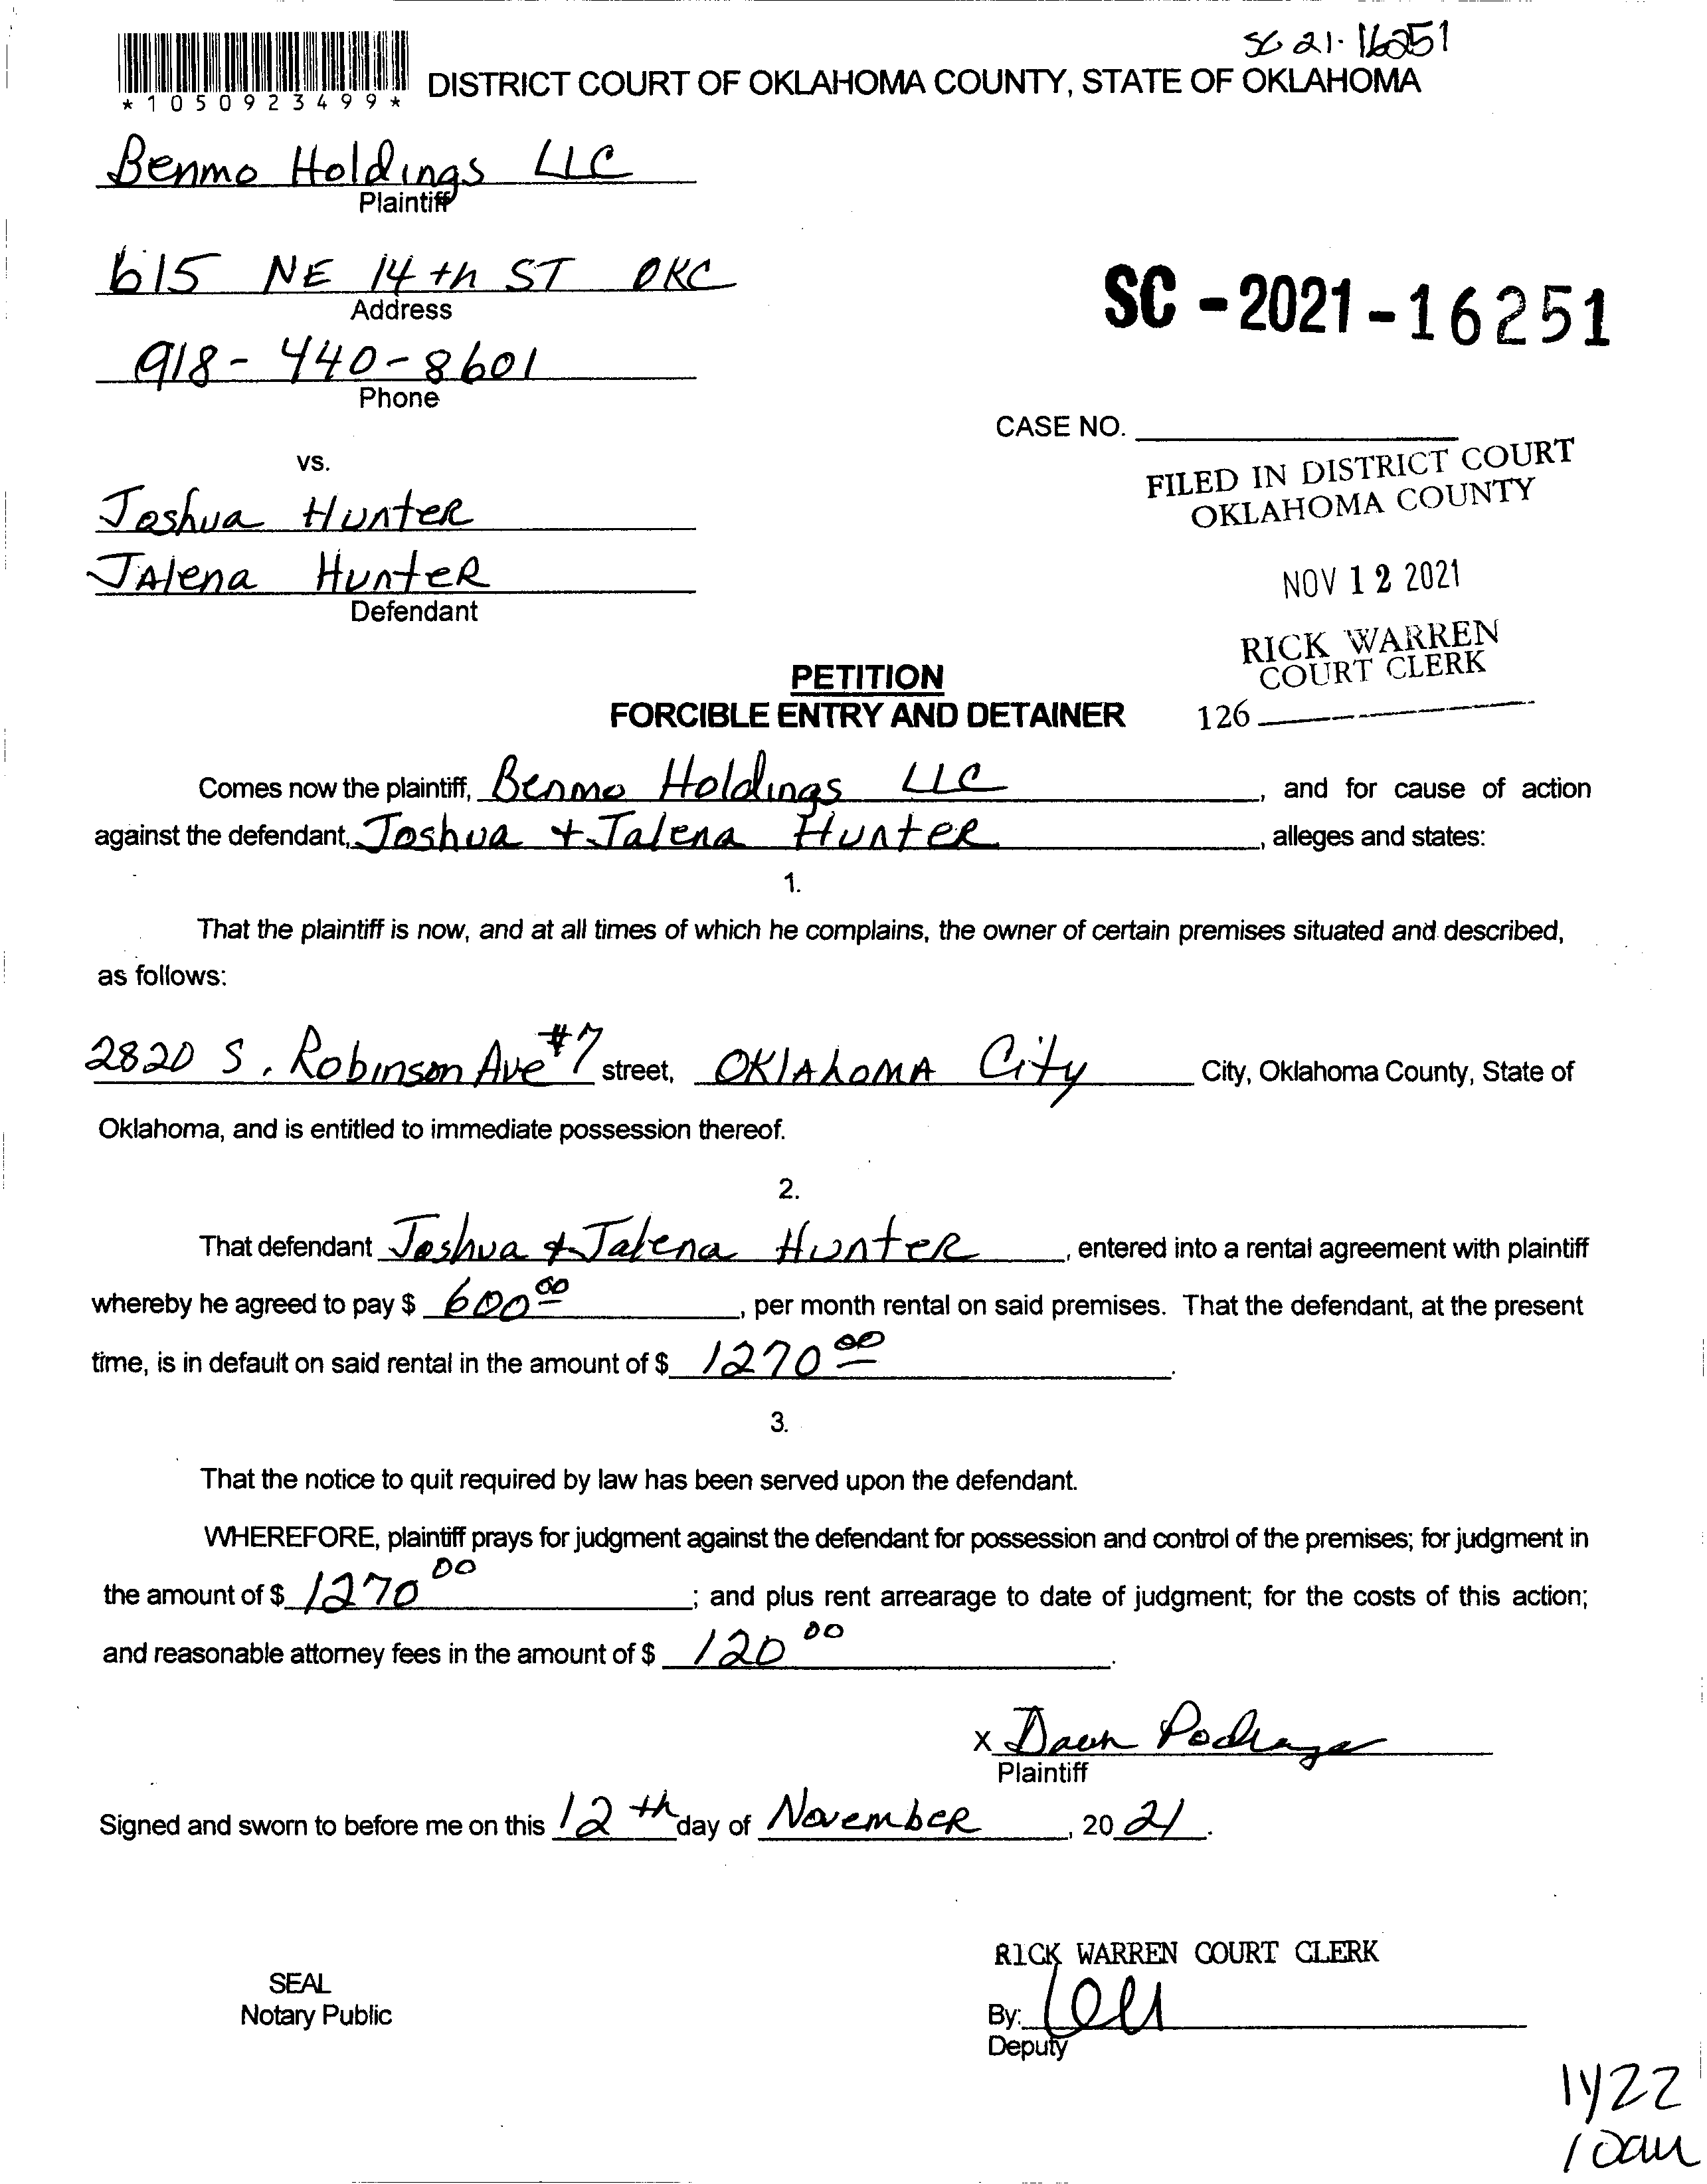 SC 21-16251
*1050923499*
DISTRICT COURT OF OKLAHOMA COUNTY, STATE OF OKLAHOMA
Benmo Holdings LLC
Plaintiff
615 NE 14th ST OKC
Address
SC-2021-16251
918-440-8601
Phone
CASE NO.
vs.
FILED IN DISTRICT COURT
OKLAHOMA COUNTY
Joshua Hunter
JAlena HunteR
Defendant
NOV 12 2021
RICK WARREN
COURT CLERK
126
PETITION
FORCIBLE ENTRY AND DETAINER
Comes now the plaintiff, Benmo Holdings LLC, and for cause of action
against the defendant, Joshua + Jalena HunteR, alleges and states:
1.
That the plaintiff is now, and at all times of which he complains, the owner of certain premises situated and described,
as follows:
2820 S. Robinson Ave #7 street, OKlAhoMA City City, Oklahoma County, State of
Oklahoma, and is entitled to immediate possession thereof.
2.
That defendant Joshua + Jalena HunteR, entered into a rental agreement with plaintiff
whereby he agreed to pay $ 600 00, per month rental on said premises. That the defendant, at the present
time, is in default on said rental in the amount of $ 1270 00.
3.
That the notice to quit required by law has been served upon the defendant.
WHEREFORE, plaintiff prays for judgment against the defendant for possession and control of the premises; for judgment in
the amount of $ 1270 00; and plus rent arrearage to date of judgment; for the costs of this action;
and reasonable attorney fees in the amount of $ 120 00.
X Dawn Pedraza
Plaintiff
Signed and sworn to before me on this 12th day of NovembeR, 2021.
RICK WARREN COURT CLERK
SEAL
Notary Public
By:
Deputy
10am